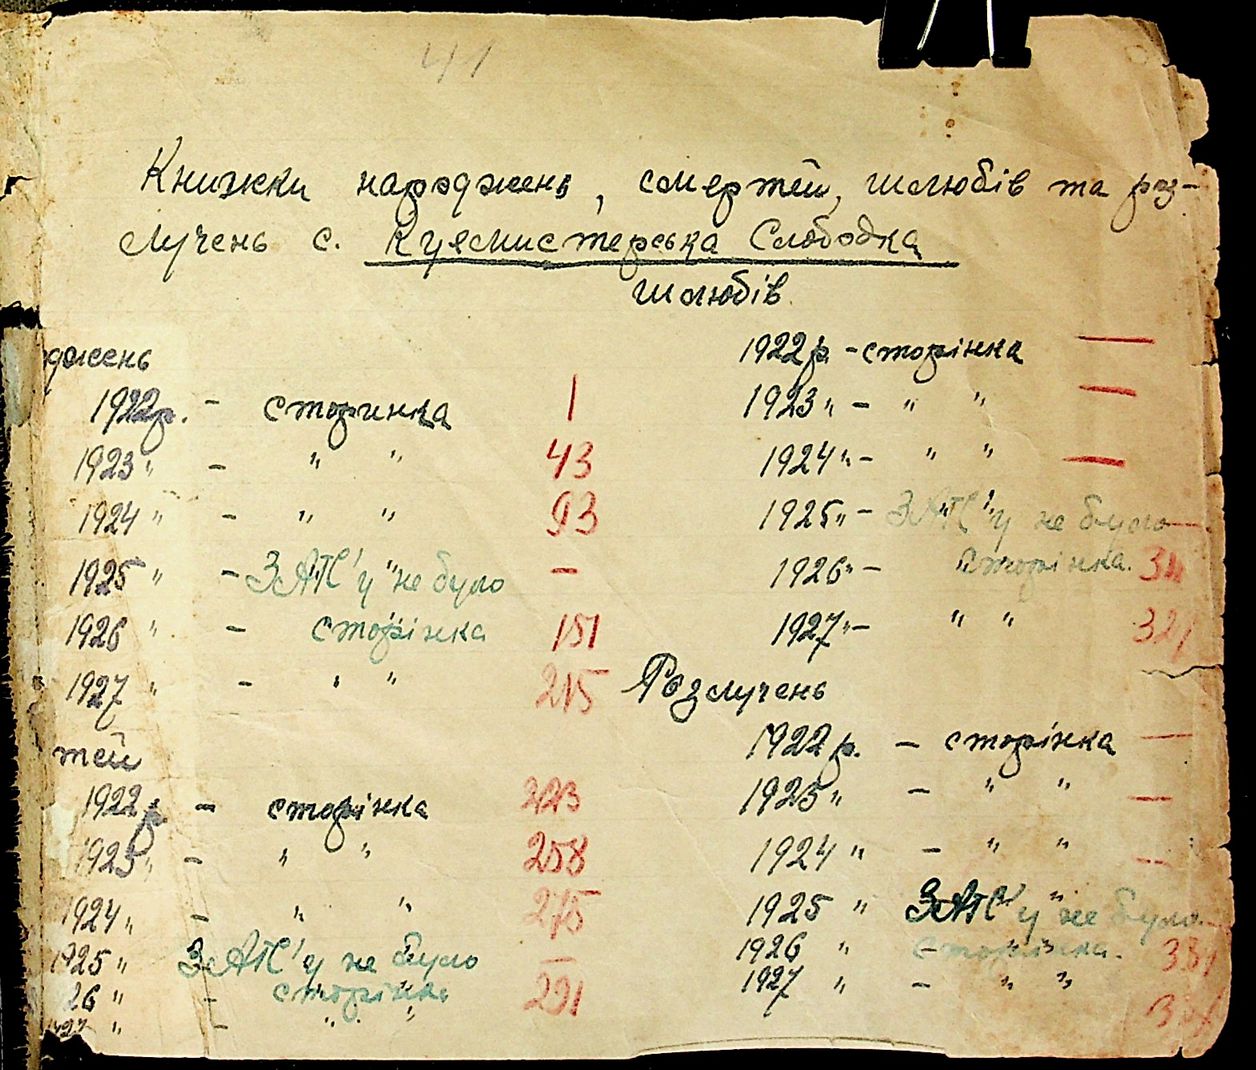 41
Книжки народжень, смертей, шлюбів та роз-
лучень с. Куямистерська Слободка
джень
1922р. - сторинка 1
1923 " - " " 43
1924 " - " " 93
1925 " - ЗАГС'у не було -
1926 " - сторінка 151
1927 " - " " 215
тей
1922р - сторінка 223
1923 " - " " 258
1924 " - " " 275
1925 " ЗАГС'у не було -
26 " - сторінка 291
1927 " - " "
шлюбів
1922р. - сторінка —
1923 " - " " —
1924 " - " " —
1925 " - ЗАГС'у не було —
1926 " - сторінка.
1927 " - " " 321
Розлучень
1922р. - сторінка —
1923 " - " " —
1924 " - " " —
1925 " ЗАГС'у не було
1926 " - сторінка.
1927 " - " "